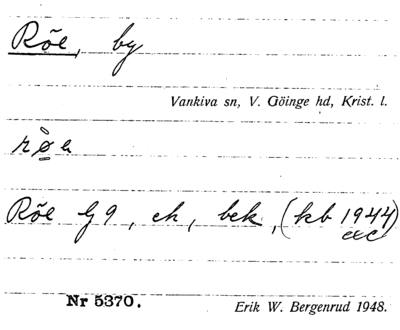 Röe, by
Vankiva sn, V. Göinge hd, Krist. l.
Röe G9, ek, bek, (kb 1944)
Nr 5370.
Erik W. Bergenrud 1948.